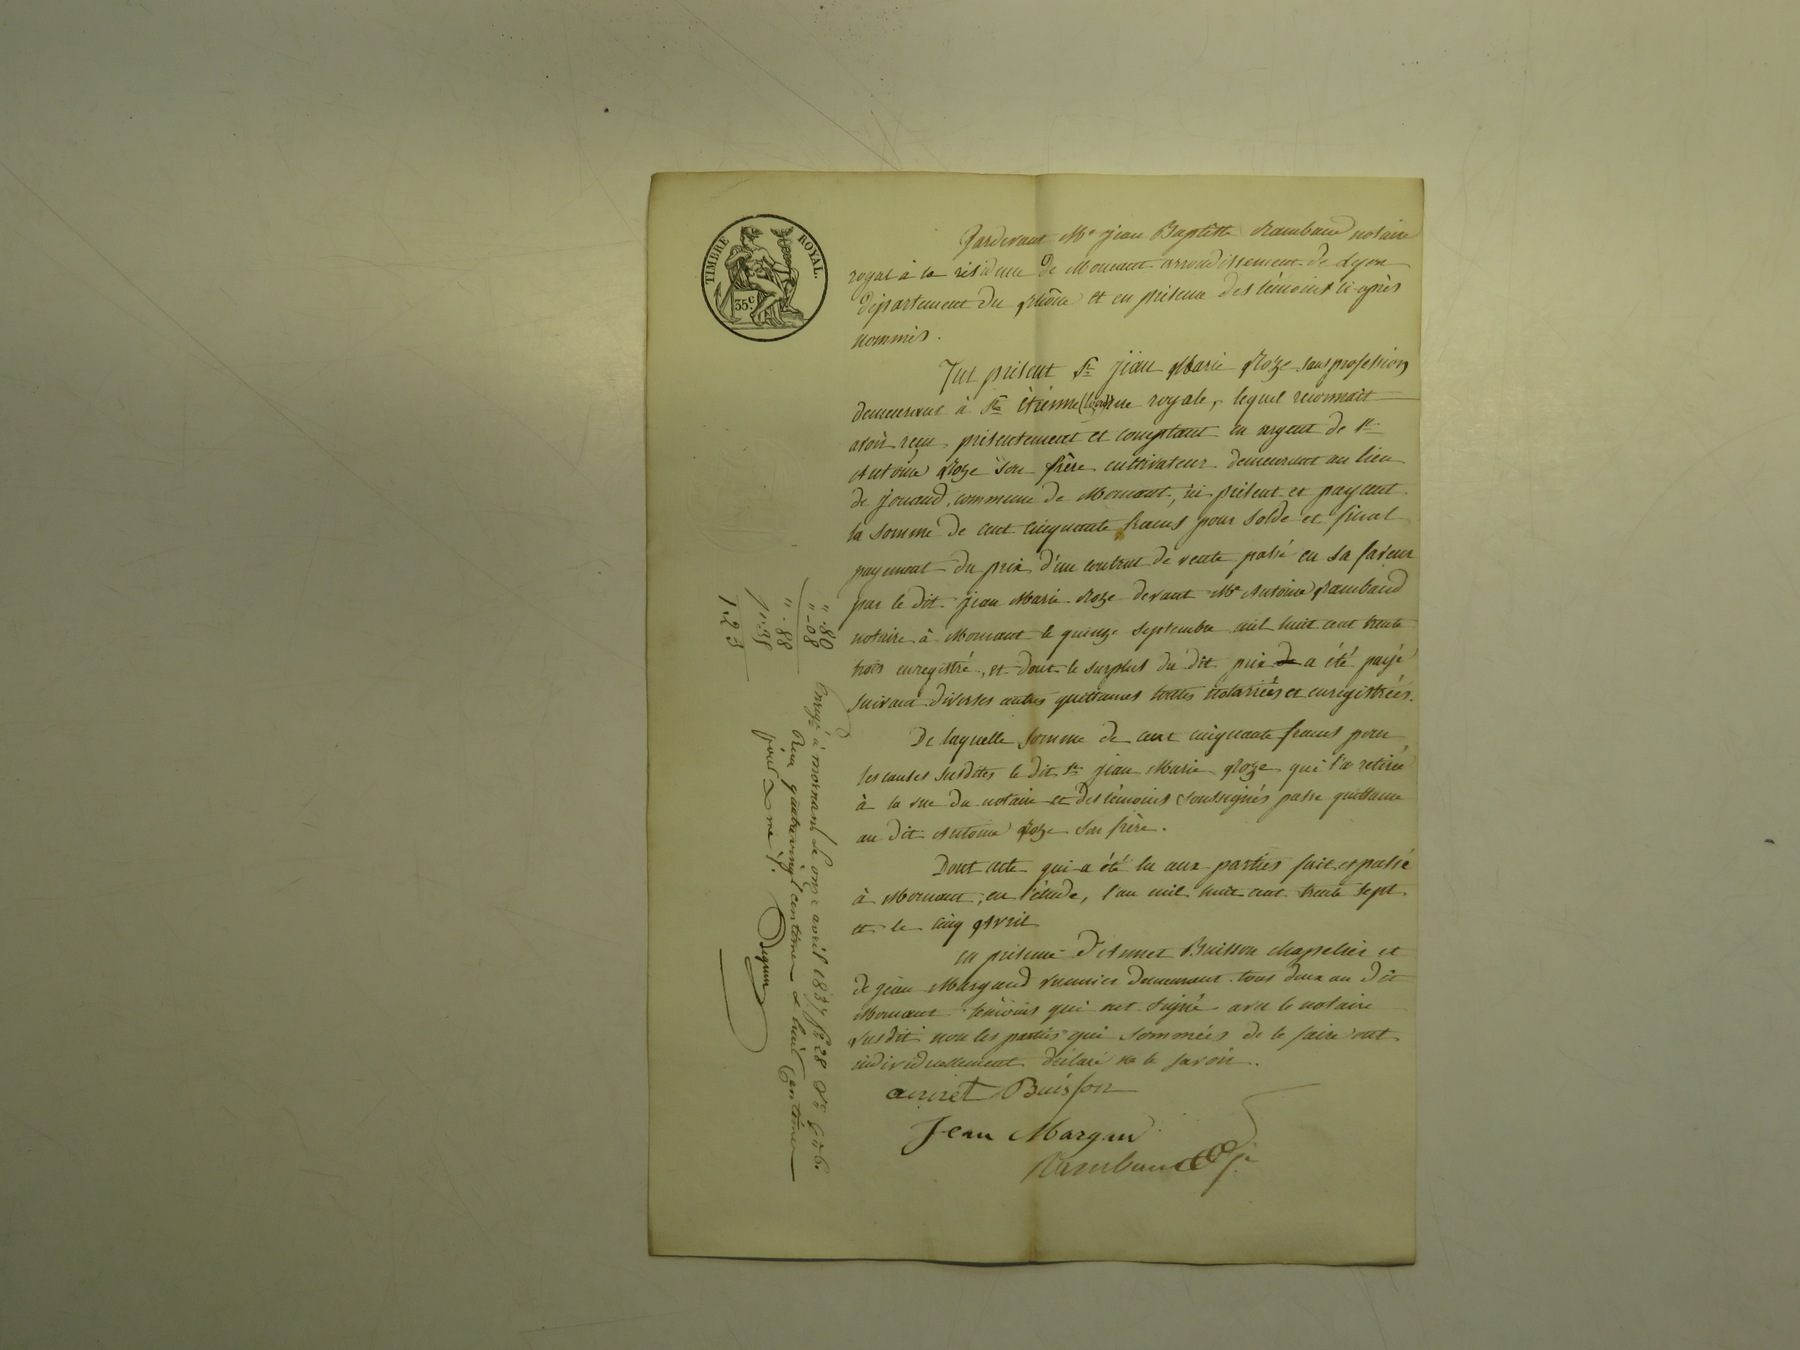 TIMBRE ROYAL.
35 c.
Pardevant Me jean Baptiste Rambaud notaire
royal à la résidence de Mornant arrondissement de Lyon
département du Rhône et en présence des témoins ci-après
nommés.
Fut présent Sr jean Marie Roze sans profession
demeurant à St etienne (Loire) rue royale, lequel reconnait
avoir reçu présentement et comptant en argent de Sr
Antoine Roze son frère cultivateur demeurant au lieu
de jouaud, commune de Mornant, ici présent et payant
la somme de cent cinquante francs pour solde et final
payement du prix d'un contrat de vente passé en sa faveur
par le dit jean Marie Roze devant Me Antoine Rambaud
notaire à Mornant le quinze septembre mil huit cent trente
trois enregistré, et dont le surplus du dit prix de a été payé
suivant diverses autres quittances toutes notariées et enregistrées.
De laquelle somme de cent cinquante francs pour
les causes susdites le dit Sr jean Marie Roze qui l'a retirée
à la vue du notaire et des témoins soussignés passe quittance
au dit Antoine Roze son frère.
Dont acte qui a été lu aux parties fait et passé
à Mornant, en l'étude, l'an mil huit cent trente sept
et le cinq Avril
en présence d'Annet Buisson chapelier et
de jean Margaud demeurant tous deux au dit
Mornant témoins qui ont signé avec le notaire
susdit non les parties qui sommées de le faire ont
individuellement déclaré ne le savoir.
annet Buisson
Jean Margaud
Rambaud
" . 80
" - 08
" . 88
" . 35
1. 23
Enregé à mornant Le onze avril 1837 fo 28 Vo C 6.
Reçu quatrevingt centimes et huit Centimes
pour Dme